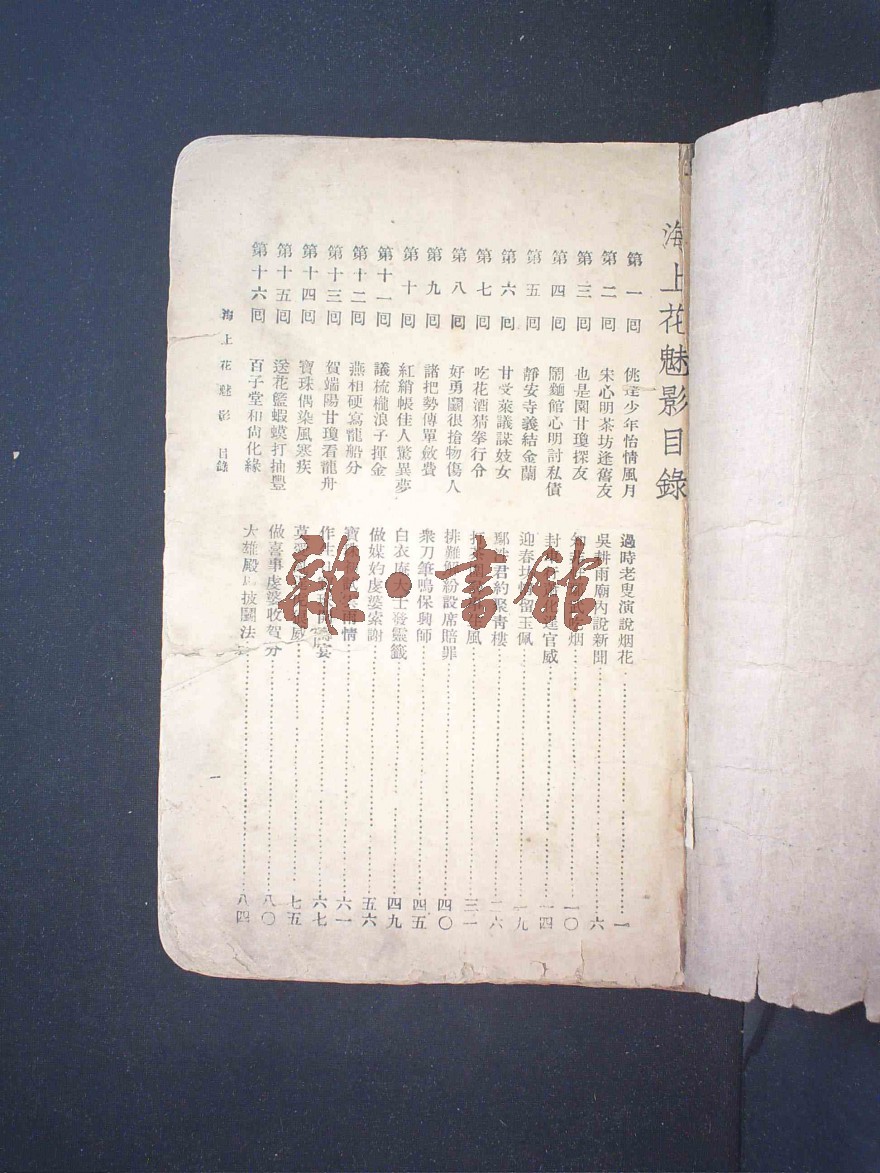 海上花魅影目錄
第一囘 佻達少年怡情風月 過時老叟演說烟花 一
第二囘 宋心明茶坊逢舊友 吳耕雨廟內說新聞 六
第三囘 也是園甘瓊探友 烟 一〇
第四囘 鬧麵館心明討私債 封 官威 一四
第五囘 靜安寺義結金蘭 迎春坊 留玉佩 一九
第六囘 甘受棠議謀妓女 鄭 君約聚靑樓 二六
第七囘 吃花酒猜拳行令 打茶圍 風 三一
第八囘 好勇鬭很搶物傷人 排難解紛設席賠罪 四〇
第九囘 諸把勢傳單斂費 衆刀筆鳴保興師 四五
第十囘 紅綃帳佳人驚異夢 白衣庵大士發靈籤 四九
第十一囘 議梳櫳浪子揮金 做媒妁虔婆索謝 五六
第十二囘 燕相硬寫龍船分 寶珠 情 六一
第十三囘 賀端陽甘瓊看龍舟 作生日 壽宴 六七
第十四囘 寶珠偶染風寒疾 莫 威 七五
第十五囘 送花籃蝦蟆打抽豐 做喜事虔婆收賀分 八〇
第十六囘 百子堂和尙化緣 大雄殿 披鬭法 八四
海上花魅影 目錄
一
雜·書館